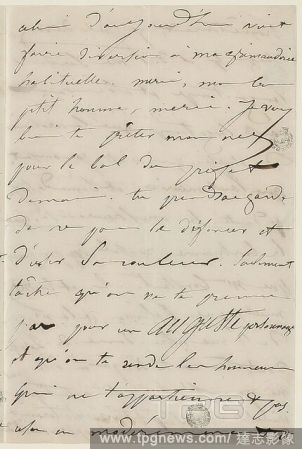 celui d'aujourd'hui vient
faire diversion à ma gourmandise
habituelle. merci, mon
petit homme, merci. Je veux
bien te prêter mon nez
pour le bal du préfet
demain. tu prendras garde
de ne pas le défoncer et
d'user sa couleur. Seulement
tâche qu'on ne te prenne
pas pour un AUGUSTE personnage
et qu'on te rende les honneurs
qui ne t'appartiennent pas.
TPG
www.tpgnews.com/達志影像